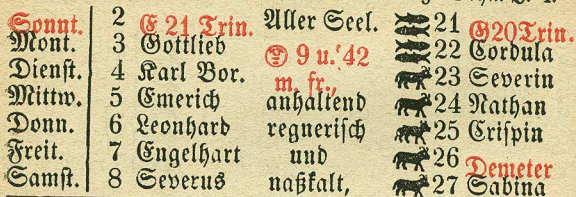 Sonnt. 2 E 21 Trin. Aller Seel. 21 G20Trin.
Mont. 3 Gottlieb 9 u. '42 22 Cordula
Dienst. 4 Karl Bor. m. fr., 23 Severin
Mittw. 5 Emerich anhaltend 24 Nathan
Donn. 6 Leonhard regnerisch 25 Crispin
Freit. 7 Engelhart und 26 Demeter
Samst. 8 Severus naßkalt, 27 Sabina